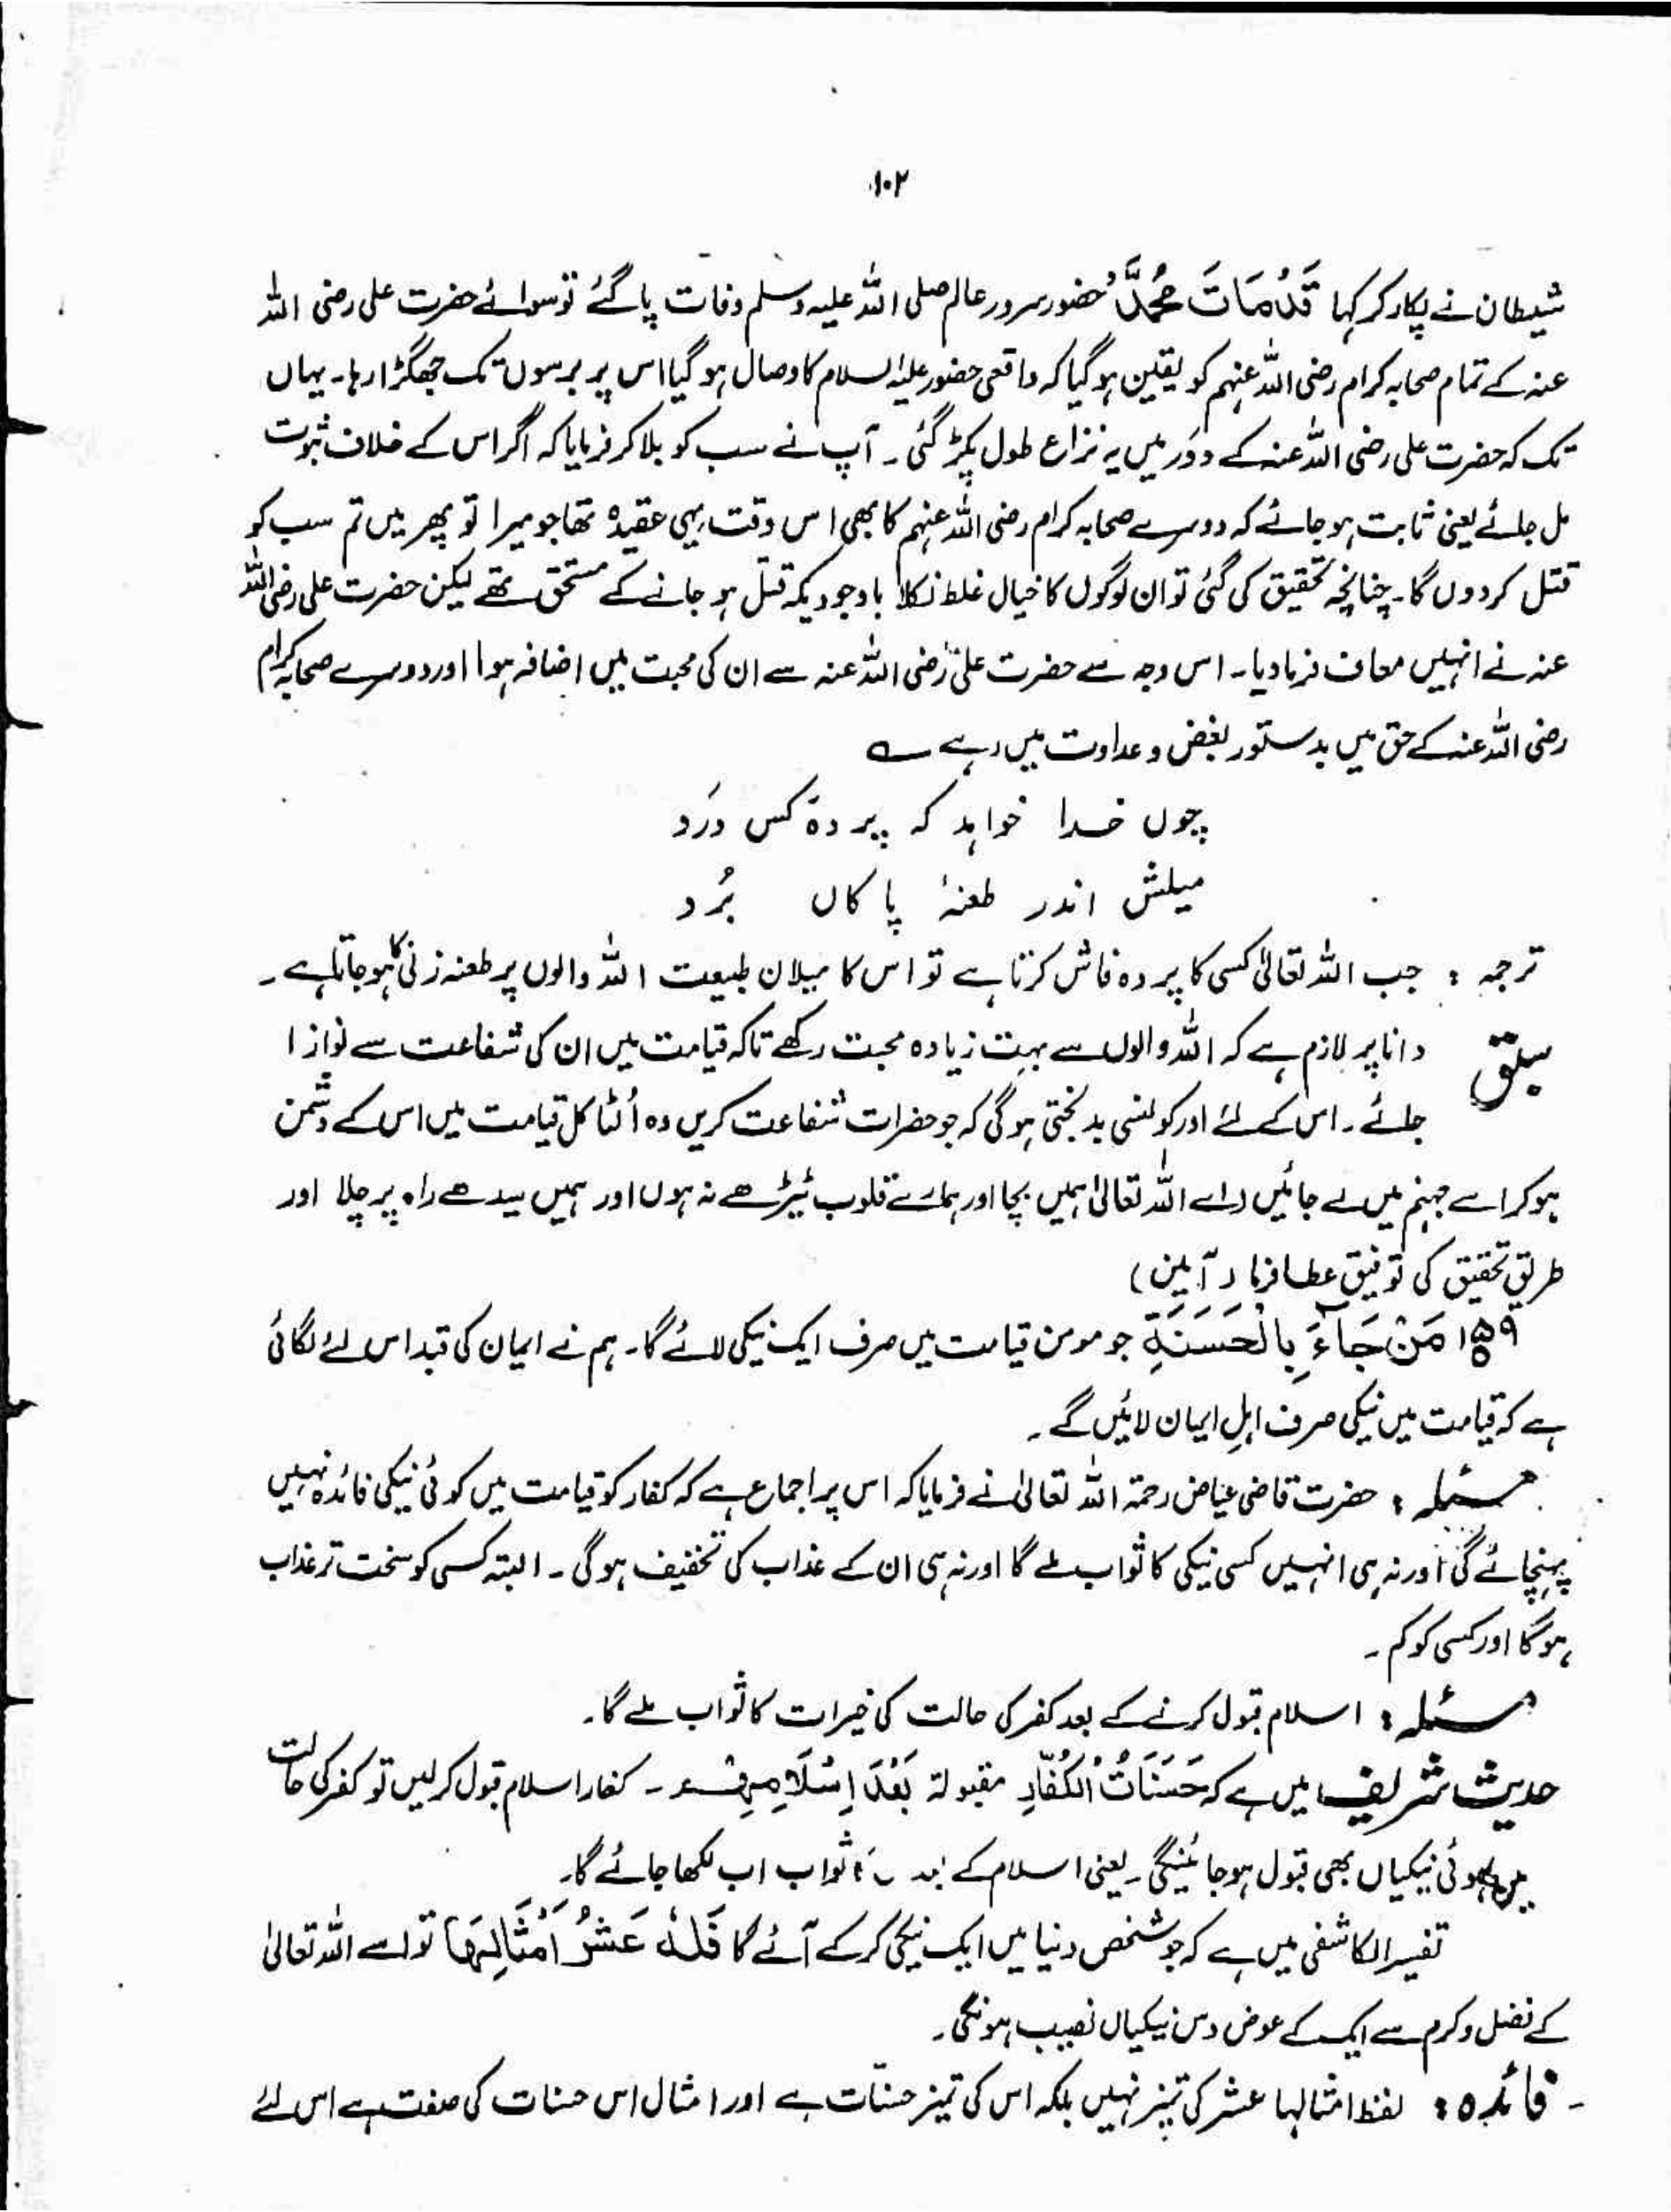 ۱۰۲
شیطان نے پکار کر کہا قَدْ مَاتَ مُحَمَّدٌ حضور سرور عالم صلی اللہ علیہ وسلم وفات پا گئے تو سوائے حضرت علی رضی اللہ
عنہ کے تمام صحابہ کرام رضی اللہ عنہم کو یقین ہو گیا کہ واقعی حضور علیہ السلام کا وصال ہو گیا اس پر برسوں تک جھگڑا رہا۔ یہاں
تک کہ حضرت علی رضی اللہ عنہ کے دَور میں یہ نزاع طول پکڑ گئی۔ آپ نے سب کو بلا کر فرمایا کہ اگر اس کے خلاف ثبوت
مل جائے یعنی ثابت ہو جائے کہ دوسرے صحابہ کرام رضی اللہ عنہم کا بھی اس وقت یہی عقیدہ تھا جو میرا تو پھر میں تم سب کو
قتل کر دوں گا۔ چنانچہ تحقیق کی گئی تو ان لوگوں کا خیال غلط نکلا باوجودیکہ قتل ہو جانے کے مستحق تھے لیکن حضرت علی رضی اللہ
عنہ نے انہیں معاف فرما دیا۔ اس وجہ سے حضرت علی رضی اللہ عنہ سے ان کی محبت میں اضافہ ہوا اور دوسرے صحابہ کرام
رضی اللہ عنہ کے حق میں بدستور بغض و عداوت میں رہے ؎
چوں خدا خواہد کہ پردۂ کس دَرَد
میلش اندر طعنۂ پاکاں بُرد
ترجمہ : جب اللہ تعالیٰ کسی کا پردہ فاش کرتا ہے تو اس کا میلان طبیعت اللہ والوں پر طعنہ زنی کا ہو جاتا ہے۔
سبق دانا پر لازم ہے کہ اللہ والوں سے بہت زیادہ محبت رکھے تاکہ قیامت میں ان کی شفاعت سے نوازا
جائے۔ اس کے لئے اور کونسی بد بختی ہو گی کہ جو حضرات شفاعت کریں وہ اُلٹا کل قیامت میں اس کے دشمن
ہو کر اسے جہنم میں لے جائیں (اے اللہ تعالیٰ ہمیں بچا اور ہمارے قلوب ٹیڑھے نہ ہوں اور ہمیں سیدھے راہ پر چلا اور
طریق تحقیق کی توفیق عطا فرما (آمین)
۱۵۹ مَنْ جَآءَ بِالْحَسَنَةِ جو مومن قیامت میں صرف ایک نیکی لائے گا۔ ہم نے ایمان کی قید اس لئے لگائی
ہے کہ قیامت میں نیکی صرف اہلِ ایمان لائیں گے۔
مسئلہ : حضرت قاضی عیاض رحمۃ اللہ تعالیٰ نے فرمایا کہ اس پر اجماع ہے کہ کفار کو قیامت میں کوئی نیکی فائدہ نہیں
پہنچائے گی اور نہ ہی انہیں کسی نیکی کا ثواب ملے گا اور نہ ہی ان کے عذاب کی تخفیف ہو گی۔ البتہ کسی کو سخت تر عذاب
ہو گا اور کسی کو کم۔
مسئلہ : اسلام قبول کرنے کے بعد کفر کی حالت کی خیرات کا ثواب ملے گا۔
حدیث شریف میں ہے کہ حَسَنَاتُ الْکُفَّارِ مقبولة بَعْدَ اِسْلَامِهِمْ۔ کفار اسلام قبول کر لیں تو کفر کی حالت
میں ہوئی نیکیاں بھی قبول ہو جائینگی۔ یعنی اسلام کے بعد ثواب اب لکھا جائے گا۔
تفسیر الکاشفی میں ہے کہ جو شخص دنیا میں ایک نیکی کر کے آئے گا فَلَهٗ عَشْرُ اَمْثَالِهَا تو اسے اللہ تعالیٰ
کے فضل و کرم سے ایک کے عوض دس نیکیاں نصیب ہونگی۔
فائدہ : لفظ امثالہا عشر کی تمیز نہیں بلکہ اس کی تمیز حسنات ہے اور امثال اس حسنات کی صفت ہے اس لئے